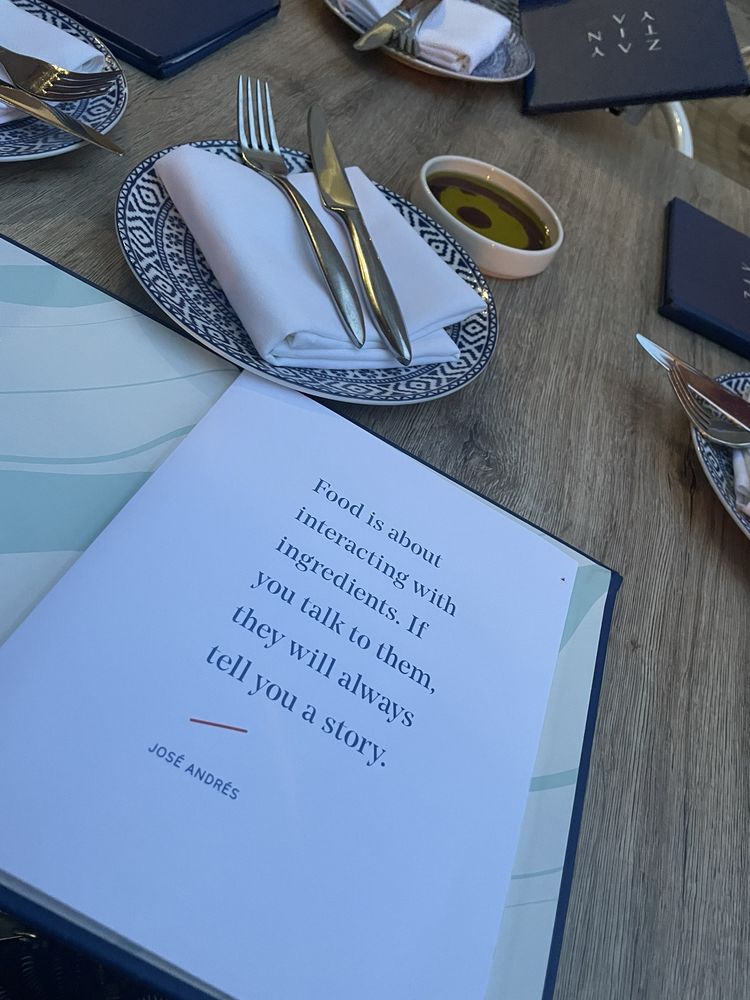 ZAY
TIN
YA
Food is about
interacting with
ingredients. If
you talk to them,
they will always
tell you a story.
JOSÉ ANDRÉS